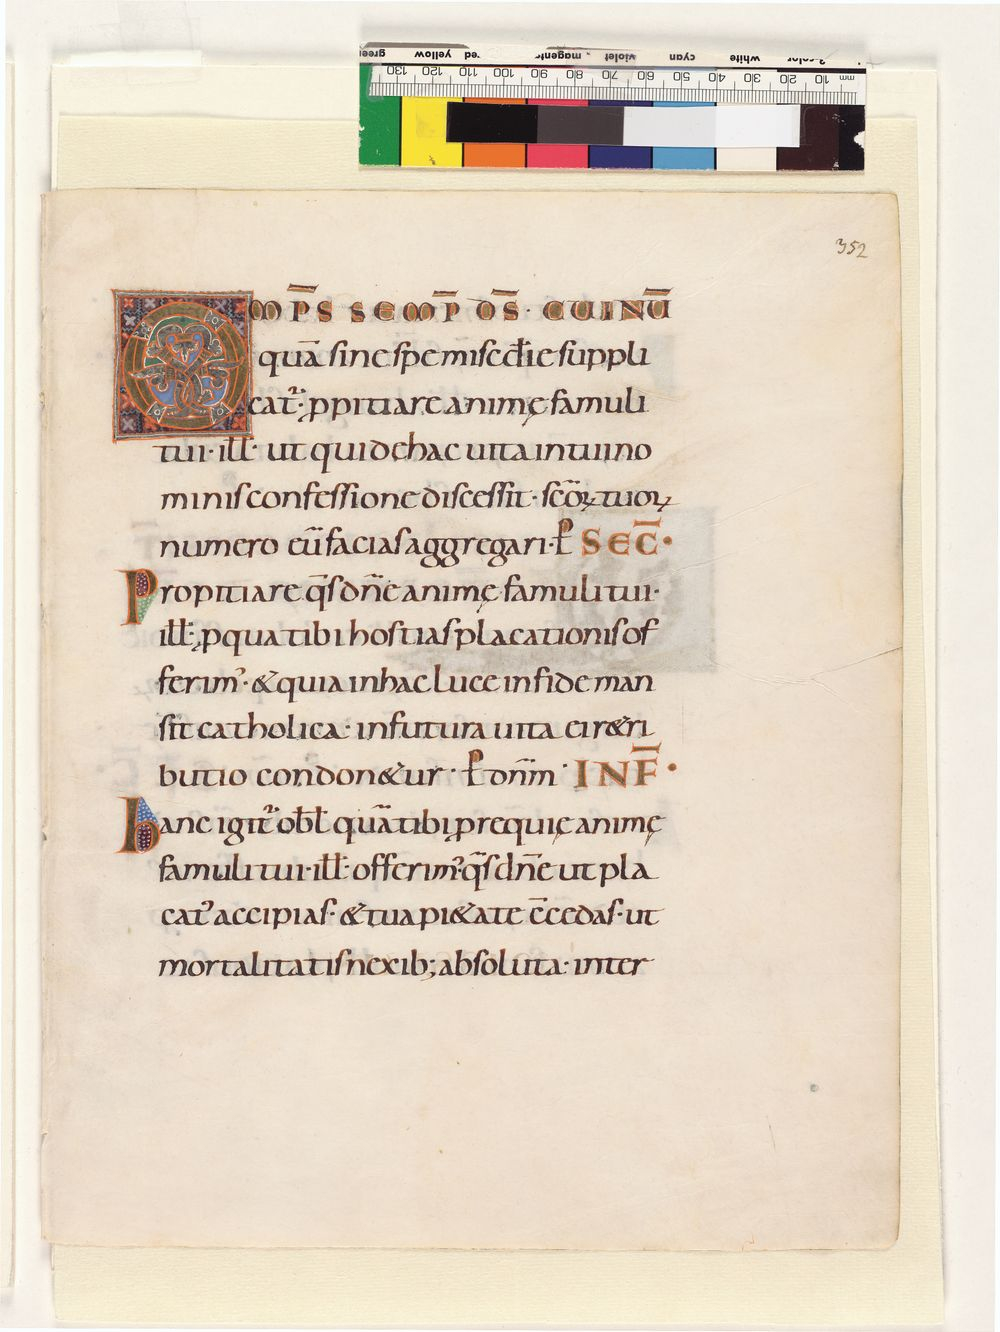 green yellow red magenta violet cyan white 3-color
130 120 110 100 90 80 70 60 50 40 30 20 10 mm
352
OMP̄S SEMP̄ D̄S· CUI NŪ
quā sine spe misc̄die suppli
cat᷑· ꝓpitiare animę famuli
tui· ill̄· ut qui de hac uita in tui no
minis confessione discessit· scōꝝ tuoꝝ
numero eū facias aggregari· P̄ SEC̄I·
Propitiare q̄s dn̄e animę famuli tui·
ill̄· ꝓ qua tibi hostias placationis of
ferim᾽· & quia in hac luce in fide man
sit catholica· in futura uita ei r&ri
butio condon&ur· P̄ dn̄m· INF̄I·
hanc igit᷑ obl̄ quā tibi ꝓ requię animę
famuli tui· ill̄· offerim᾽ q̄s dn̄e ut pla
cat᾽ accipias· & tua pi&ate c̄cedas· ut
mortalitatis nexib; absoluta· inter